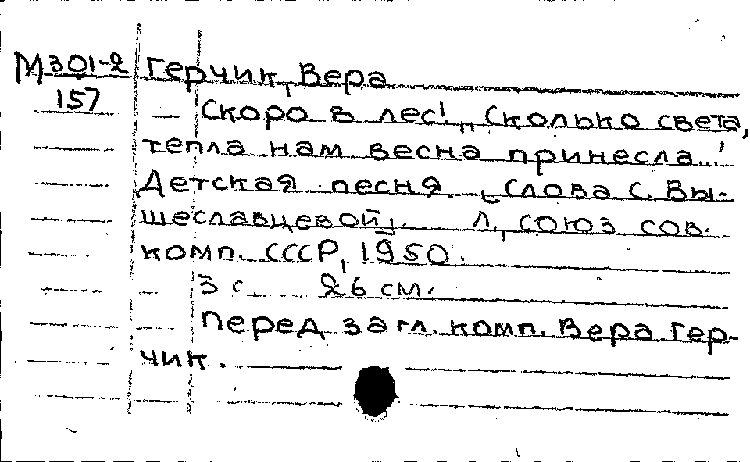 М301-2 Герчик, Вера
157 Скоро в лес! „Сколько света,
тепла нам весна принесла..."
Детская песня. [Слова С. Вы-
шеславцевой]. Л., союз сов.
комп. СССР, 1950.
3 с. 26 см.
Перед загл. комп. Вера Гер-
чик.